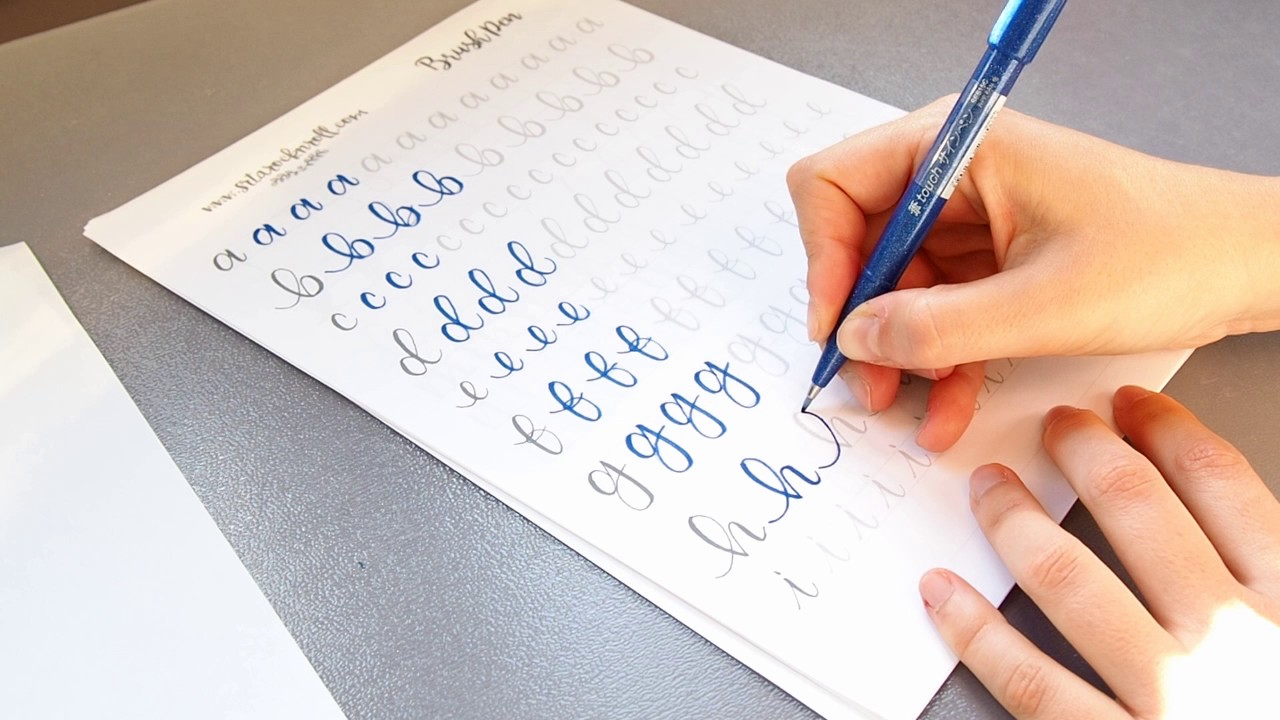 Brush Pen
www.sitarocknroll.com
a a a a a a a a a a a a
b b b b b b b b b
c c c c c c c c c c c c c c c c
d d d d d d d d d d d
e e e e e e e e e e e e e
f f f f f f f f f
g g g g g g g
h h h h
i i i i i i
touch サインペン